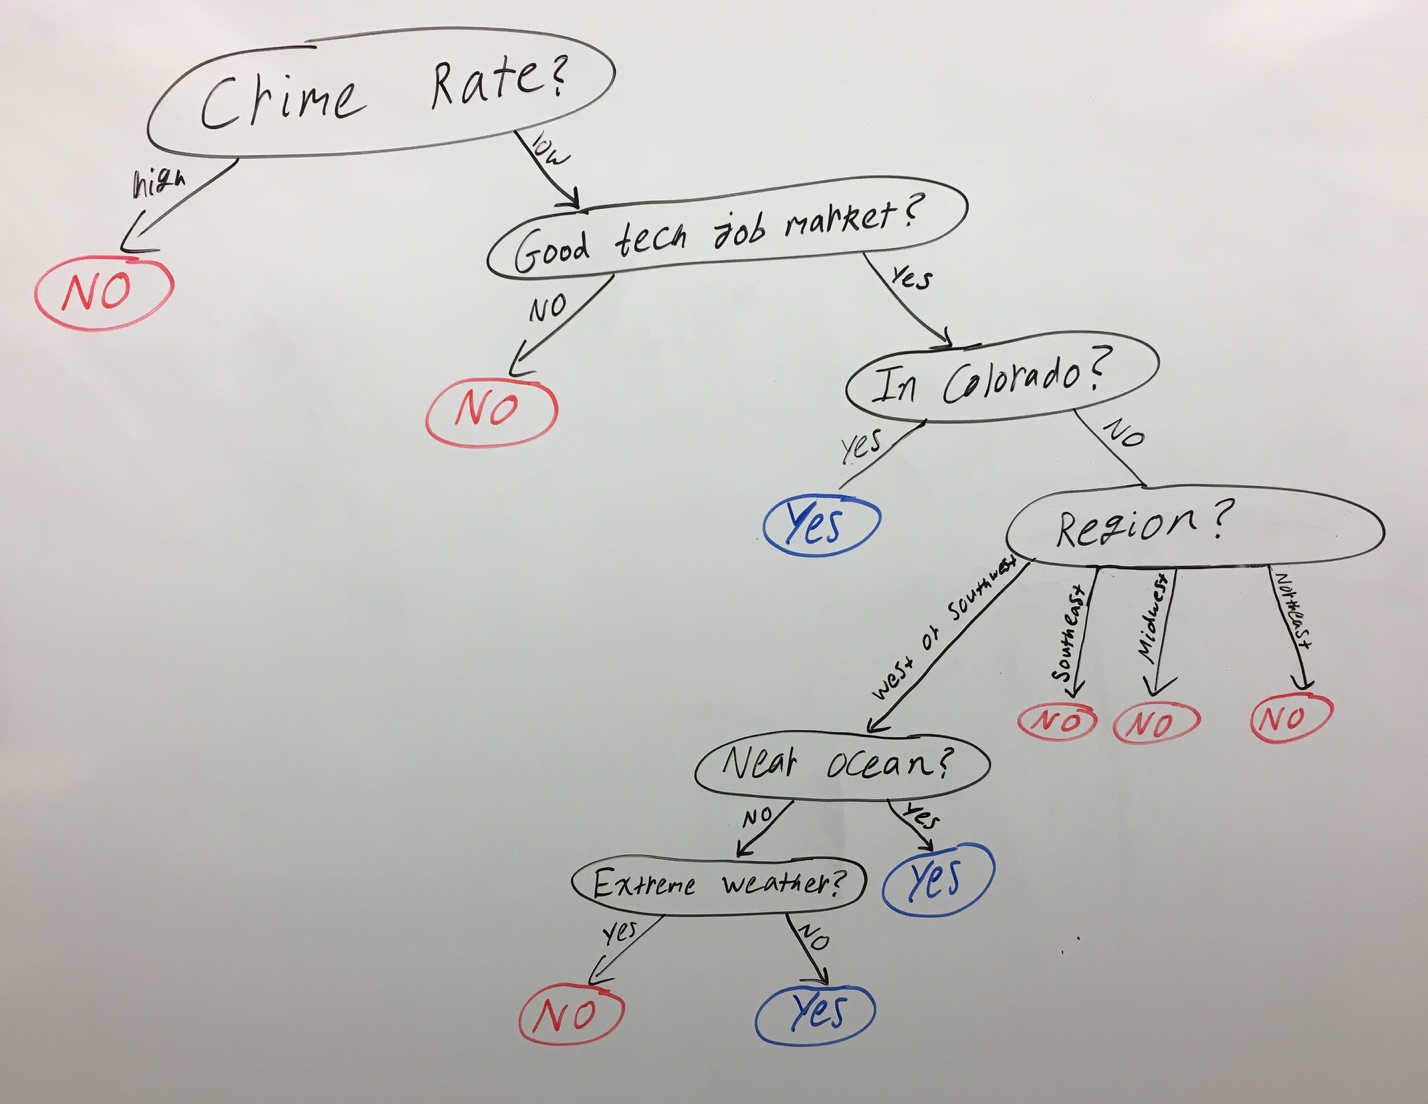 Crime Rate?
high
low
NO
Good tech job market?
NO
Yes
NO
In Colorado?
Yes
NO
Yes
Region?
West or Southwest
Southeast
Midwest
Northeast
NO
NO
NO
Near ocean?
NO
Yes
Extreme weather?
Yes
Yes
NO
NO
Yes